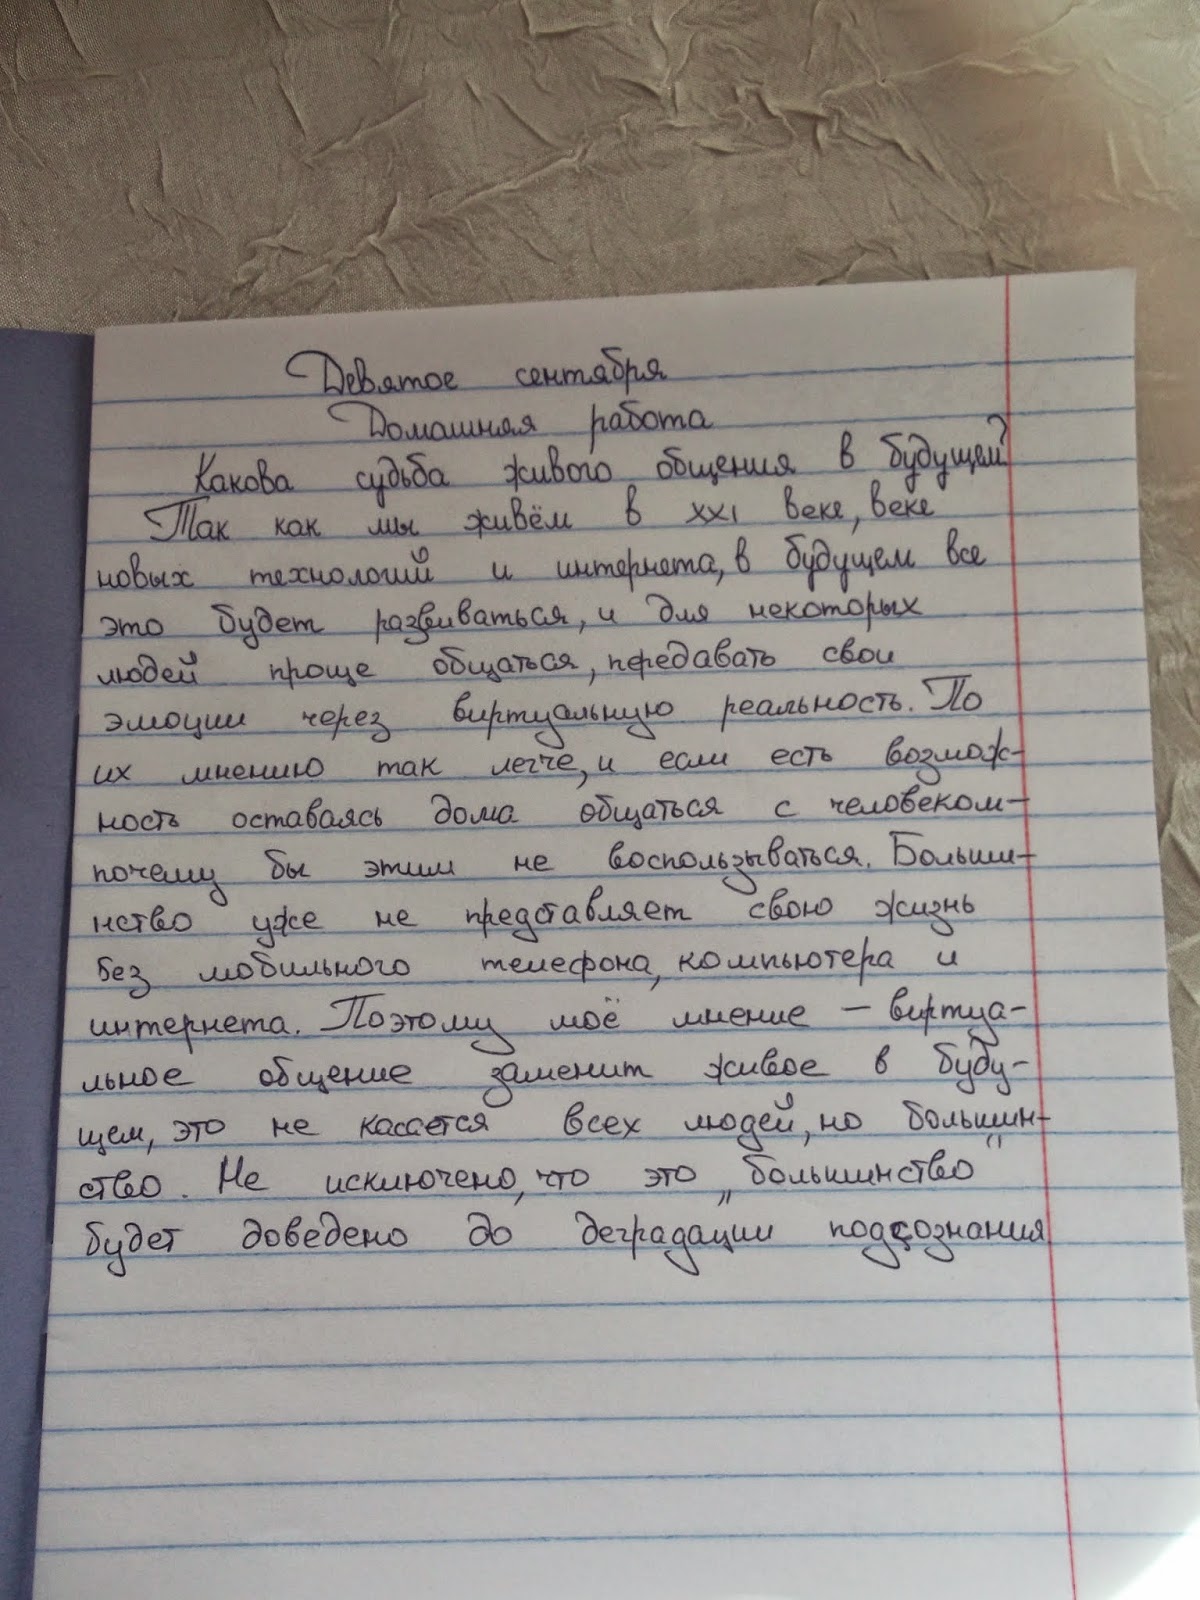 Девятое сентября
Домашняя работа
Какова судьба живого общения в будущем?
Так как мы живём в XXI веке, веке
новых технологий и интернета, в будущем все
это будет развиваться, и для некоторых
людей проще общаться, передавать свои
эмоции через виртуальную реальность. По
их мнению так легче, и если есть возмож-
ность оставаясь дома общаться с человеком-
почему бы этим не воспользываться. Больши-
нство уже не представляет свою жизнь
без мобильного телефона, компьютера и
интернета. Поэтому моё мнение – виртуа-
льное общение заменит живое в буду-
щем, это не касается всех людей, но большин-
ство. Не исключено, что это „большинство"
будет доведено до деградации подсознания